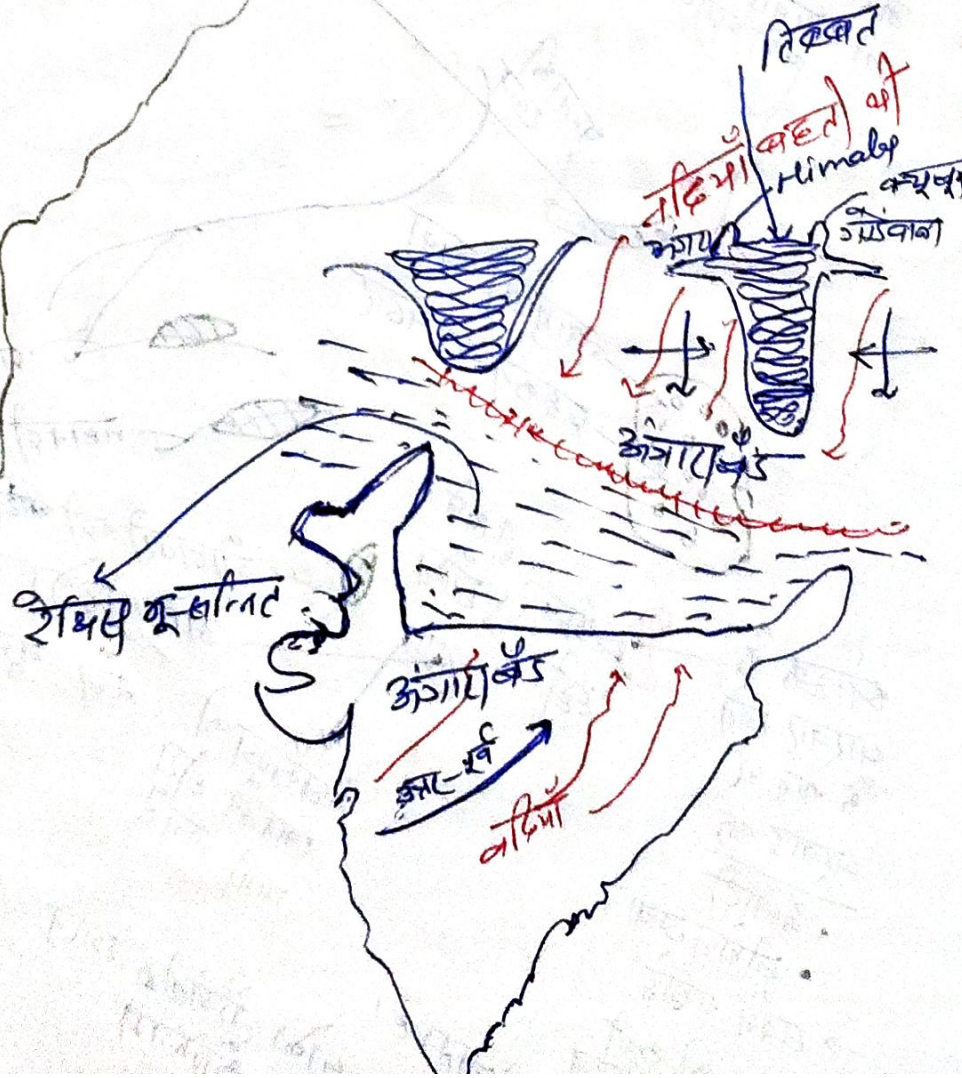 तिब्बत
नदियाँ बहती थी
Himalay
गोंडवाना
अंगारालैंड
टेथिस भू-सन्नति
अंगारालैंड
उत्तर-पूर्व
नदियाँ